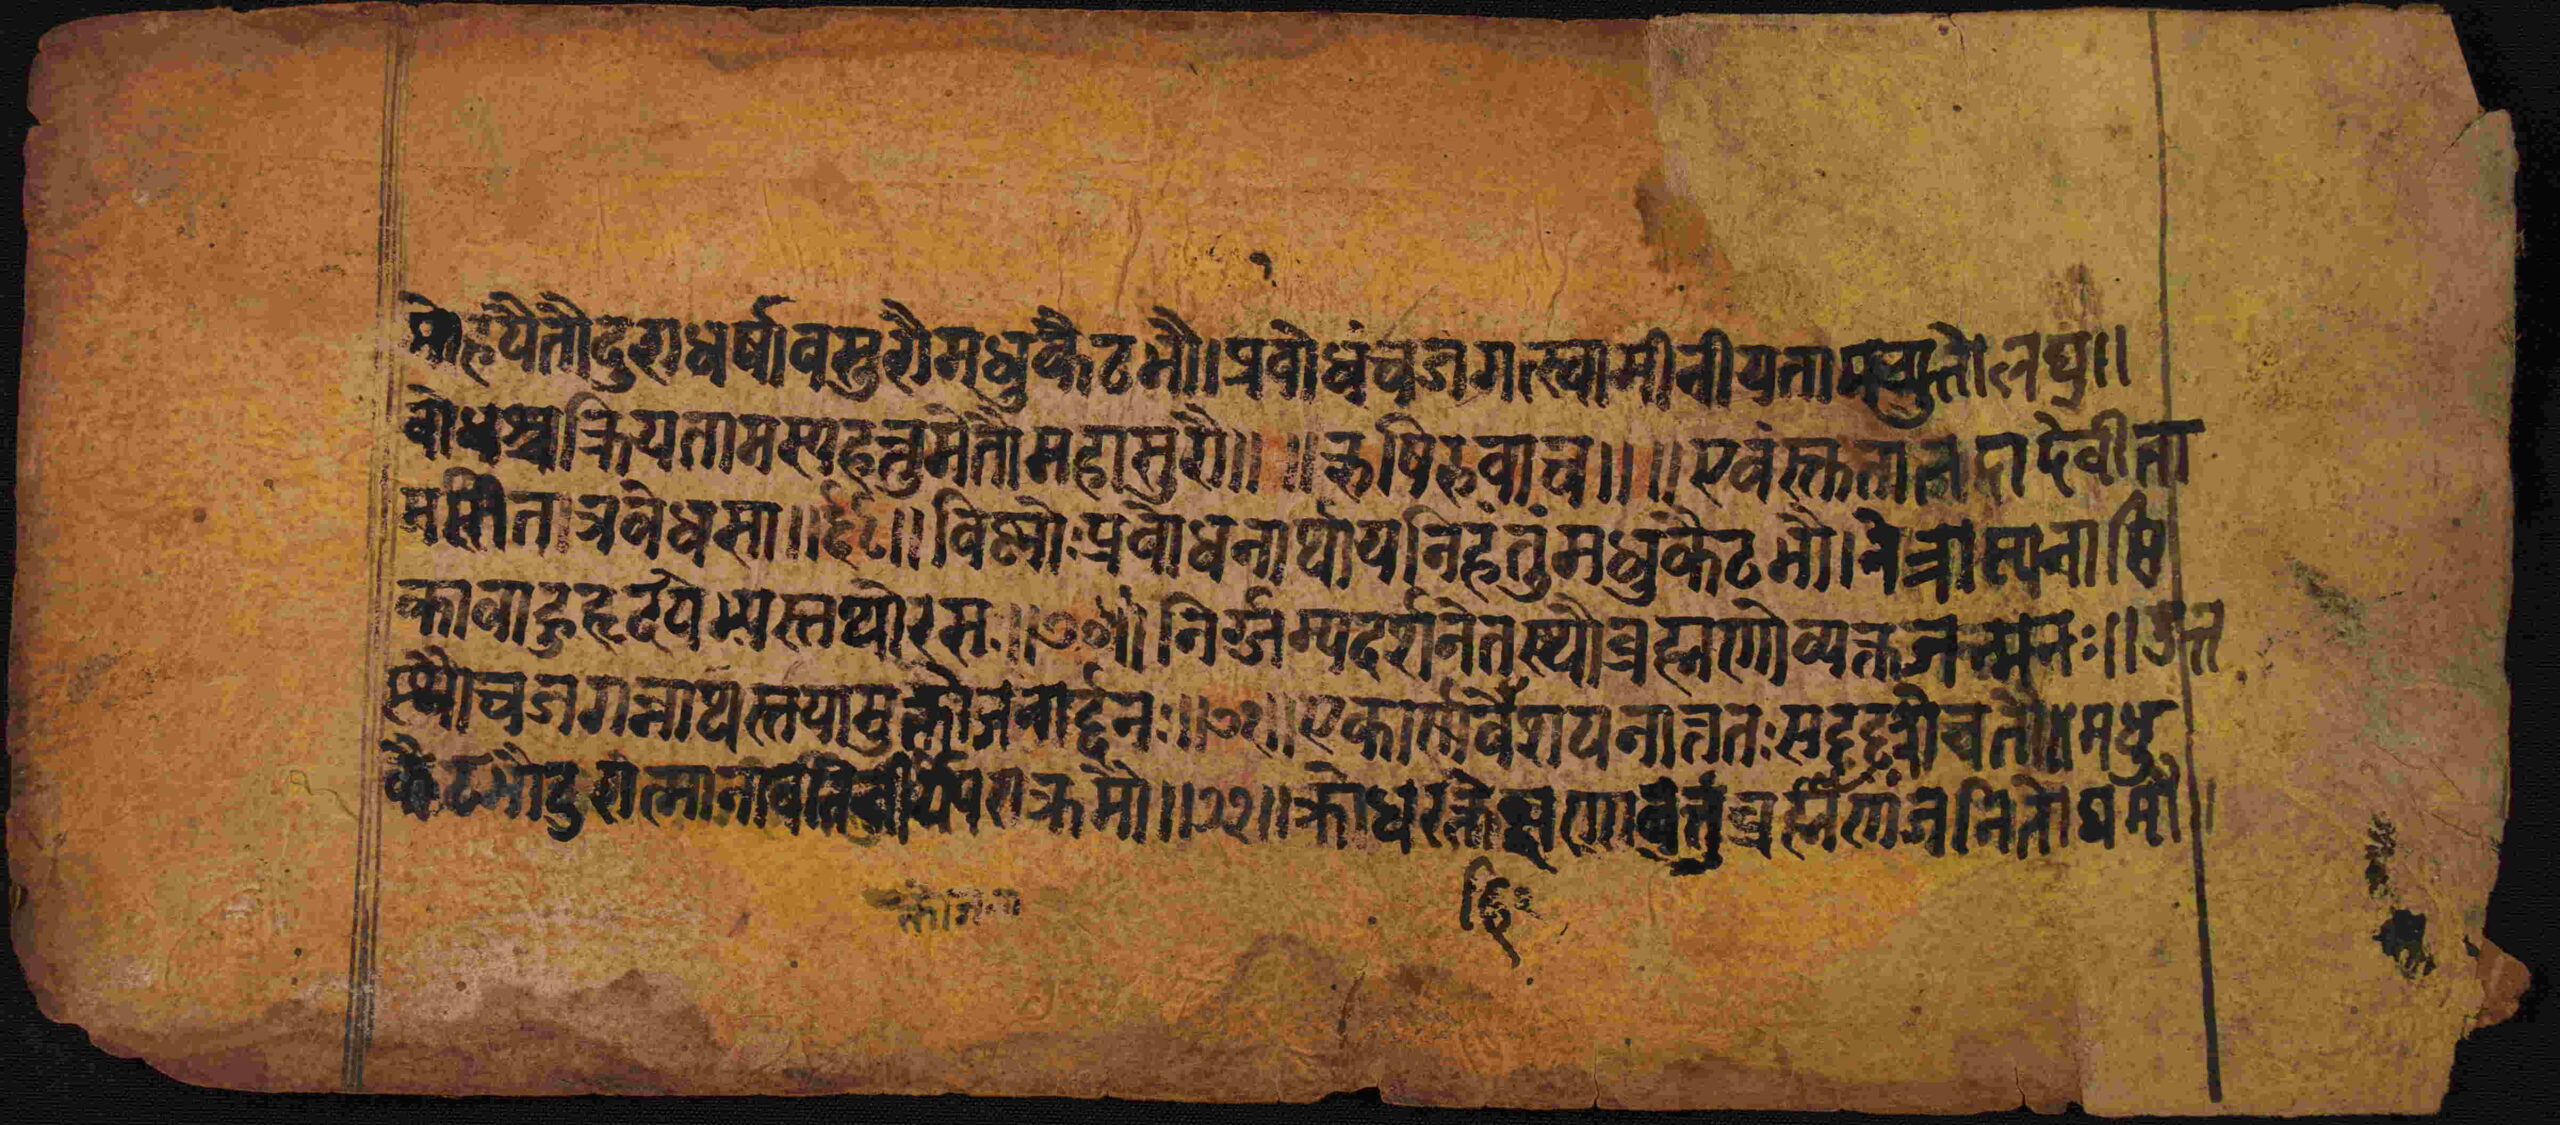 मोहयैतौदुराधर्षावसुरौमधुकैटभौ।प्रबोधंचजगत्स्वामीनीयतामच्युतोलघु॥
बोधश्चक्रियतामस्यहन्तुमेतौमहासुरौ॥ ॥ऋषिरुवाच॥ ॥एवंस्तुतातदादेवीता
मसीतत्रवेधसा॥६८॥विष्णोःप्रबोधनार्थायनिहंतुंमधुकैटभौ।नेत्रास्यनासि
काबाहुहृदयेभ्यस्तथोरसः॥७०॥निर्गम्यदर्शनेतस्थौब्रह्मणोव्यक्तजन्मनः॥उत्त
स्थौचजगन्नाथस्तयामुक्तोजनार्द्दनः॥७१॥एकार्णवेशयनात्ततःसददृशेचतौ।मधु
कैटभौदुरात्मानावतिवीर्यपराक्रमौ॥७२॥क्रोधरक्तेक्षणावत्तुंब्रह्माणंजनितोद्यमौ॥